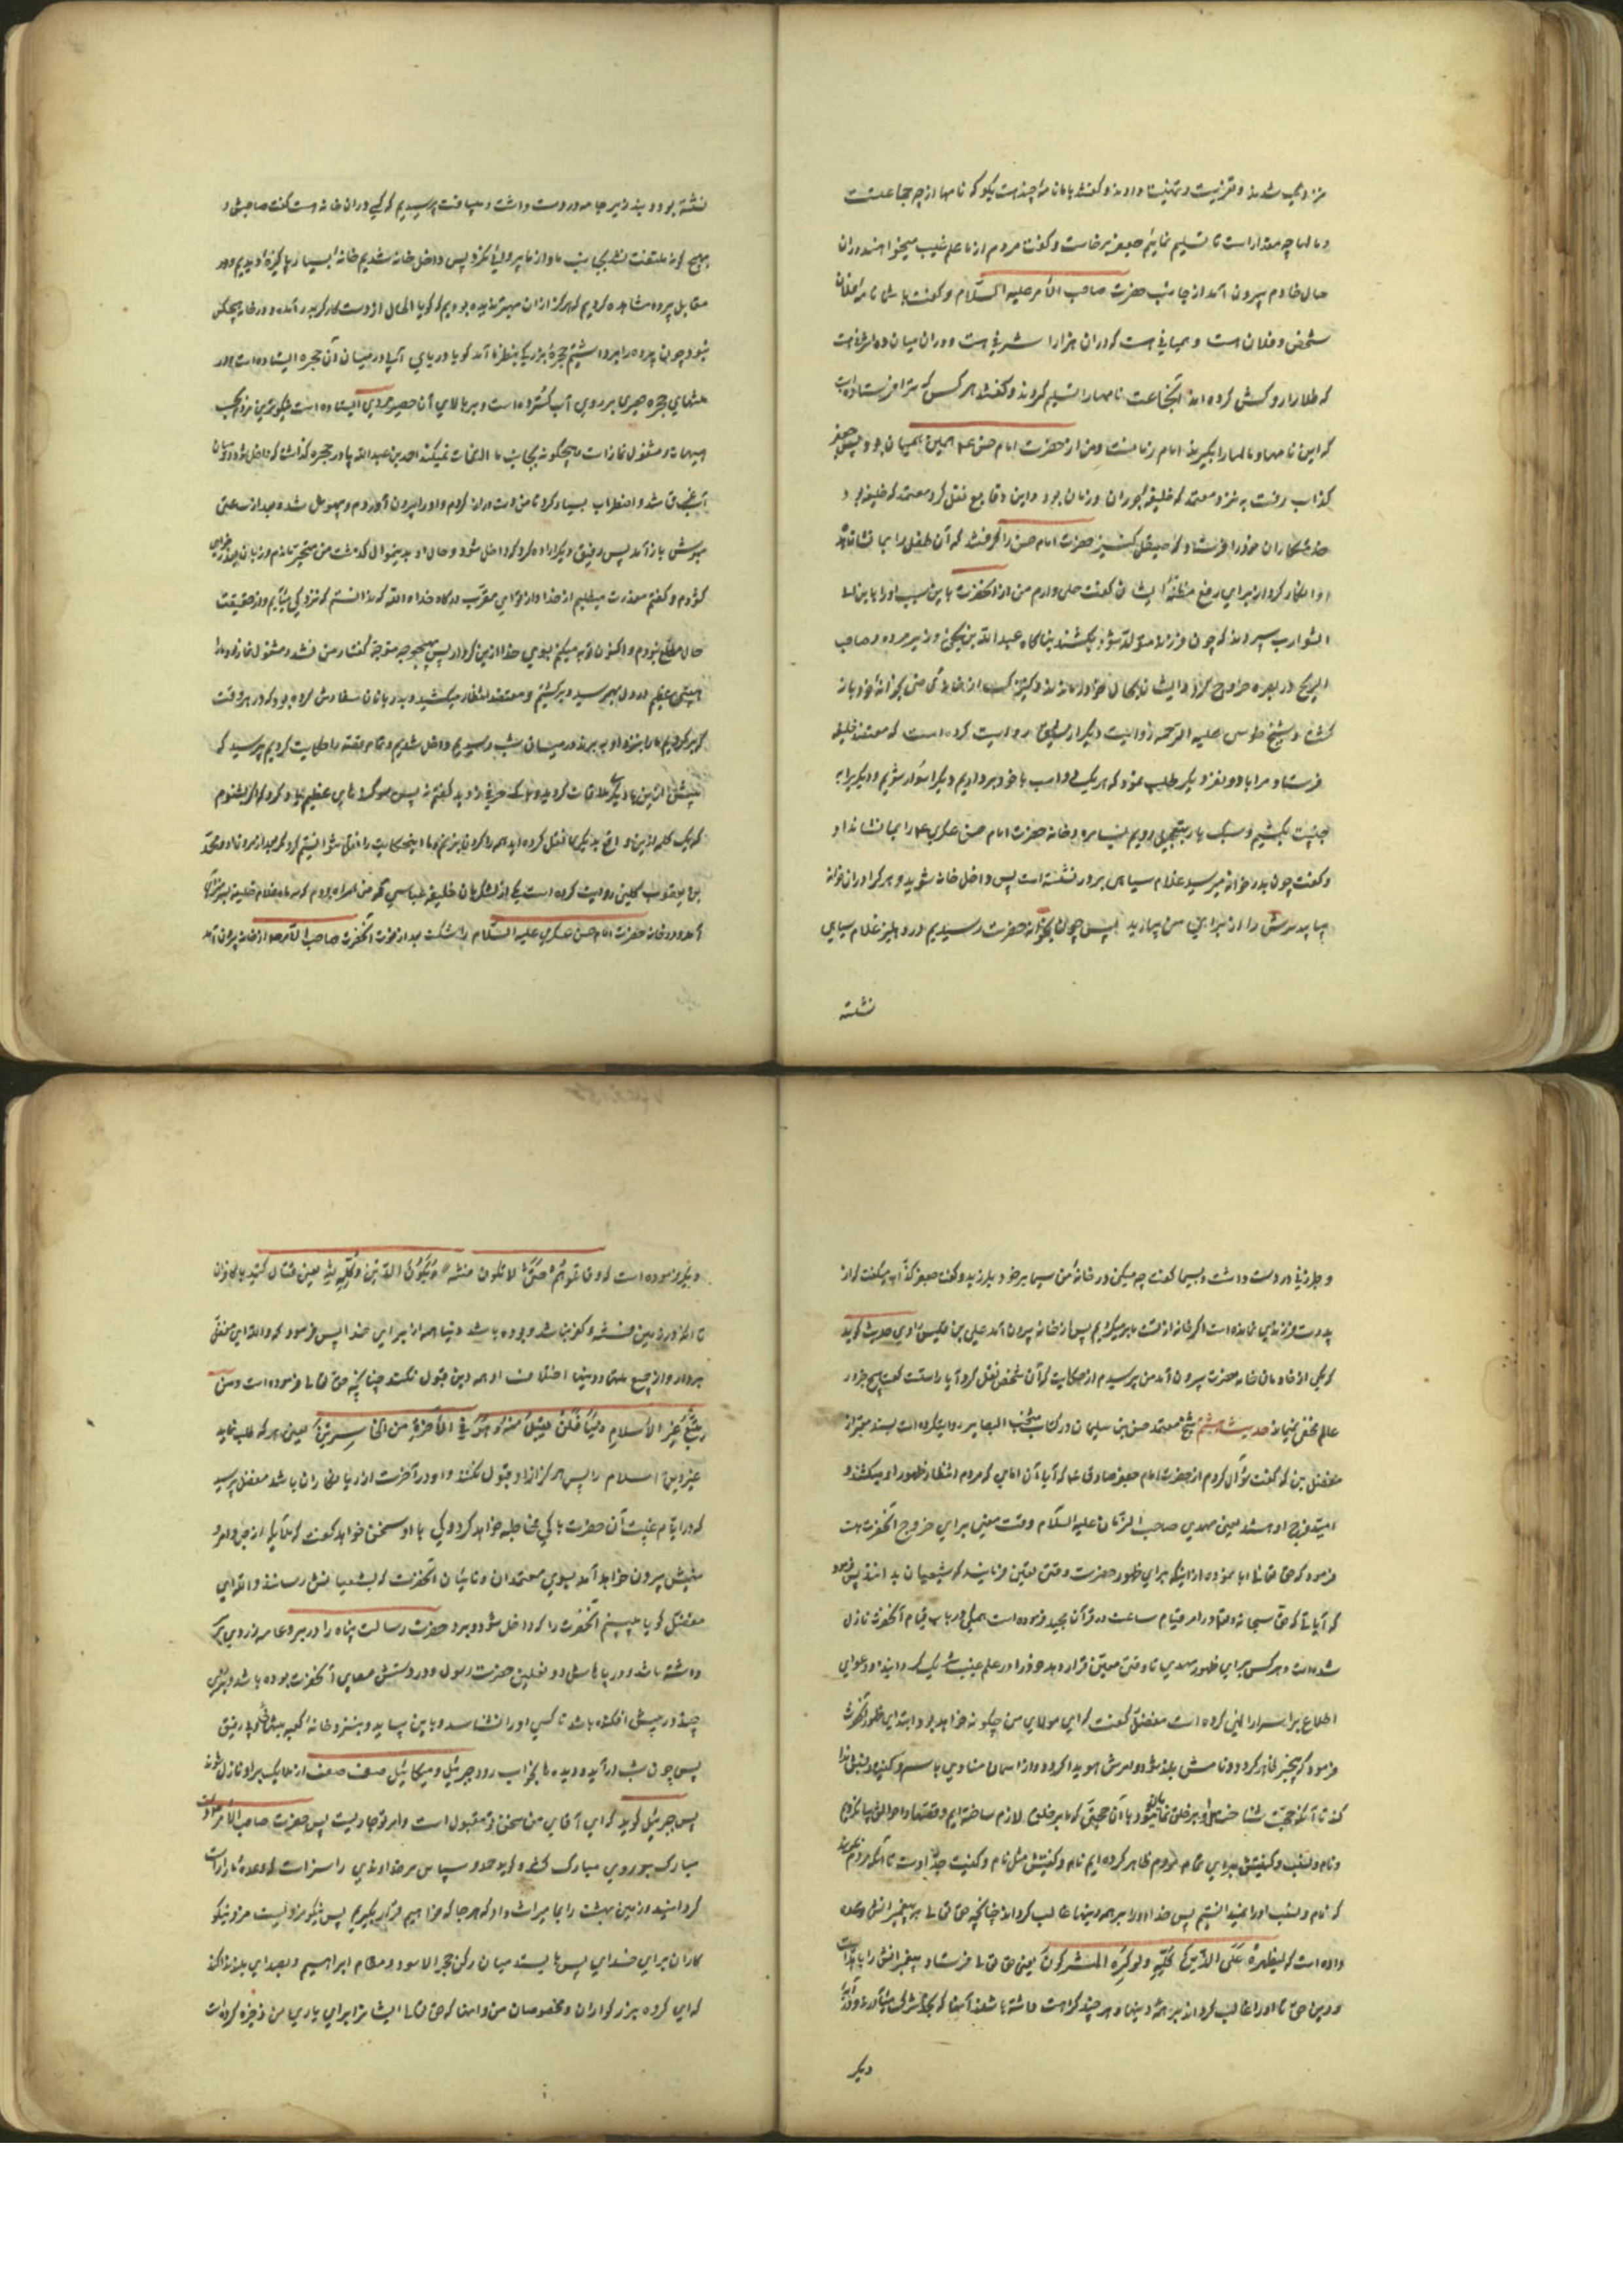 نزد وی شدند و تعزیت و تهنیت دادند و گفتند با ما نامه چند هست بگو که نامها از چه جماعتست
و مالها چه مقدار است تا تسلیم نمائیم جعفر برخاست و گفت مردم از ما علم غیب میخواهند در آن
حال خادم بیرون آمد از جانب حضرت صاحب الأمر علیه السلام و گفت با شما نامه فلان
شخص و فلان هست و همیانی هست که در آن هزار اشرفی هست و در آن میان ده اشرفی هست
که طلا را روکش کرده اند آنجماعت نامها را تسلیم کردند و گفتند هر کس که ترا فرستاده است
که این نامها و مالها را بگیرد امام زمانست و مراد حضرت امام حسن ع همین همیان بود پس جعفر
کذاب رفت به نزد معتمد که خلیفه بود در آن زمان بود و این وقایع نقل کرد معتمد که خلیفه بود
خدمتکاران خود را فرستاد که صیقل کنیز حضرت امام حسن را گرفتند که آن طفل را بما نشان ده
او انکار کرد از برای رفع مظنه ایشان گفت حملی دارم من از آنحضرت باین سبب او را بابن ابی
الشوارب سپردند که چون فرزند متولد شود بکشند بناگاه عبد الله بن یحیی وزیر مرد و صاحب
الزنج در بصره خروج کرد و ایشان بحال خود درماندند و کنیزک از خانه قاضی بخانه خود باز
گشت و شیخ طوسی علیه الرحمه روایت دیگر از رشیق روایت کرده است که معتضد خلیفه
فرستاد مرا با دو نفر دیگر طلب نمود که هر یک دو اسب با خود برداریم و یکرا سوار شویم و دیگریرا به
جنیبت بکشیم و سبک بار بتعجیل رویم بسامره و خانه حضرت امام حسن عسکری ع را بما نشان داد
و گفت چون بدر خانه میرسید غلام سیاهی بر در نشسته است پس داخل خانه شوید و هر که در آن خانه
بیابید سرش را از برای من بیاورید پس چون بخانه حضرت رسیدیم در دهلیز غلام سیاهی
نشسته
نشسته بود و بند زیر جامه در دست داشت و میبافت پرسیدیم که کی در این خانه هست گفت صاحبش و
بهیچ گونه ملتفت نشد بجانب ما و از ما پروائی نکرد پس داخل خانه شدیم خانه بسیار پاکیزه دیدیم و در
مقابل پرده مشاهده کردیم که هرگز از آن بهتر ندیده بودیم که گویا الحال از دست کارگر بدر آمده و در خانه هیچکس
نبود چون پرده را برداشتیم حجره بزرگی بنظر ما آمد گویا دریای آبی در میان آن حجره ایستاده است و در
منتهای حجره حصیری بر روی آب گسترده است و بر بالای آن حصیر مردی ایستاده است نیکوترین مردم بحسب
هیأت و مشغول نماز است و هیچگونه بجانب ما التفات نمیکند احمد بن عبد الله پا در حجره گذاشت که داخل شود در میان
آب غرق شد و اضطراب بسیار کرد تا من دست دراز کردم و او را بیرون آوردم و بیهوش شد و بعد از ساعتی
بهوش باز آمد پس رفیق دیگر اراده کرد که داخل شود و حال او بدینموال گذشت من متحیر ماندم و زبان بعذر خواهی
گشودم و گفتم معذرت میطلبم از خدا و از تو ای مقرب درگاه خدا والله که ندانستم که نزد کی میآیم و از حقیقت
حال مطلع نبودم و اکنون توبه میکنم بسوی خدا ازین کردار پس بهیچوجه متوجه گفتار من نشد و مشغول نماز بود ما را
هیبتی عظیم در دل بهم رسید و برگشتیم و معتضد انتظار میکشید و بدربانان سفارش کرده بود که در هر وقت
که برگردیم ما را بنزد او ببرند در میان شب رسیدیم و داخل شدیم و تمام قصه را حکایت کردیم پرسید که
پیش از من با دیگری ملاقات کردید و با کسی حرفی زدید گفتم نه پس سوگندهای عظیم یاد کرد که اگر بشنوم
که یک کلمه ازین واقعه بدیگری نقل کرده اید همه را گردن بزنم و ما اینحکایت را نقل نتوانستیم کرد مگر بعد از مردن او و محمد
بن یعقوب کلینی روایت کرده است یکی از لشگریان خلیفه عباسی گفت من همراه بودم که سیماء غلام خلیفه بسر من رأی
آمد و در خانه حضرت امام حسن عسکری علیه السلام را شکست بعد از فوت آنحضرت صاحب الأمر ع از خانه بیرون آمد
و طبرزینی در دست داشت و بسیما گفت چه میکنی در خانه من سیما بر خود بلرزید و گفت جعفر کذاب میگفت که از
پدرت فرزندی نمانده است اگر خانه از تست ما بر میگردیم پس از خانه بیرون آمد علی بن قیس راوی حدیث گوید
که یکی از خادمان خانه حضرت بیرون آمد من پرسیدم از حکایت که آن شخص نقل کرد آیا راستست گفت هیچ چیز در
عالم مخفی نمیماند حدیث هشتم شیخ معتمد حسن بن سلیمان در کتاب منتخب البصایر روایت کرده است بسند معتبر از
مفضل بن عمر که گفت سؤال کردم از حضرت امام جعفر صادق ع که آیا آن امامی که مردم انتظار ظهور او میکشند و
امید فرج او هستند یعنی مهدی صاحب الزمان علیه السلام وقت معینی برای خروج آنحضرت هست
فرمود که حق تعالی ابا نموده از اینکه برای ظهور حضرت وقتی تعیین فرمایند که شیعیان بدانند پس فرمود
که آیاتی که حق سبحانه و تعالی در امر قیام ساعت در قرآن مجید فرموده است همگی در باب قیام آنحضرت نازل
شده است و هر کس برای ظهور مهدی ما وقتی معین قرار دهد خود را در علم غیب شریک گردانیده و دعوای
اطلاع بر اسرار الهی کرده است مفضل گفت که ای مولای من چگونه خواهد بود ابتدای ظهور آنحضرت
فرمود که بیخبر ظاهر گردد و نامش بلند شود و امرش هویدا گردد و از آسمان منادی باسم و کنیه و نسبش ندا
کند تا آنکه حجت شناختن او بر خلق تمام شود با آن حجتی که ما بر خلق لازم ساخته ایم و قصه ها و احوال او بیان کردیم
و نام و نسب و کنیتش برای تمام مردم ظاهر کرده ایم نام و کنیتش مثل نام و کنیت جد اوست تا آنکه مردم نگویند
که نام و نسب او را نمیدانستیم پس خدا او را بر همه دینها غالب گرداند چنانچه حق تعالی به پیغمبرانش وعده
داده است که لیظهره علی الدین کله ولو کره المشرکون یعنی حق تعالی فرستاد پیغمبرانش را با هدایت
و دین حق تا او را غالب گرداند بر همه دینها و هر چند کراهت داشته باشند آنها که بخدا شرک میآورند و در آیه
دیگر
دیگر فرموده است که و قاتلوهم حتی لا تکون فتنة و یکون الدین کله لله یعنی قتال کنید با کافران
تا آنکه در زمین فتنه و کفر نباشد و بوده باشد دینها همه از برای خدا پس فرمود که والله ای مفضل
بردارد از جمیع ملتها و دینها اختلاف او همه دین قبول نکند چنانکه حق تعالی فرموده است و من
یبتغ غیر الاسلام دینا فلن یقبل منه و هو فی الآخرة من الخاسرین یعنی هر که طلب نماید
غیر دین اسلام را پس هرگز از او قبول نکنند و او در آخرت از زیانکاران باشد مفضل پرسید
که در ایام غیبت آن حضرت با کی مخاطبه خواهد کرد و کی با او سخن خواهد گفت که ملائکه از جن و امر و
نهیش بیرون خواهد آمد بسوی معتمدان و نایبان آنحضرت که بشیعیانش رسانند والله ای
مفضل گویا میبینم آنحضرت را که داخل شود و برد حضرت رسالت پناه را در بر و عمامه زردی بر سر
داشته باشد و در پاهایش دو نعلین حضرت رسول و در دستش عصای آنحضرت بوده باشد و بزی
چند در پیش افکنده باشد تا کسی او را نشناسد و باین هیأت بیاید و بنزد خانه کعبه بیکس و بی رفیق
پس چون شب در آید و دیده ها بخواب رود جبرئیل و میکائیل صف صف از ملائکه بر او نازل شوند
پس جبرئیل گوید که ای آقای من سخن تو مقبول است و امر تو جاریست پس حضرت صاحب الأمر دست
مبارک بر روی مبارک کشد و گوید حمد و سپاس مر خداوندی را سزاست که وعده ما را راست
گردانید و زمین بهشت را بما میراث داد که هر جا که خواهیم قرار بگیریم پس نیکو مزدیست مزد نیکو
کاران برای خدای پس بایستد میان رکن حجر الاسود و مقام ابراهیم و بصدای بلند ندا کند
که ای گروه بزرگواران و مخصوصان من و آنها که حق تعالی ایشانرا برای یاری من ذخیره کرده است